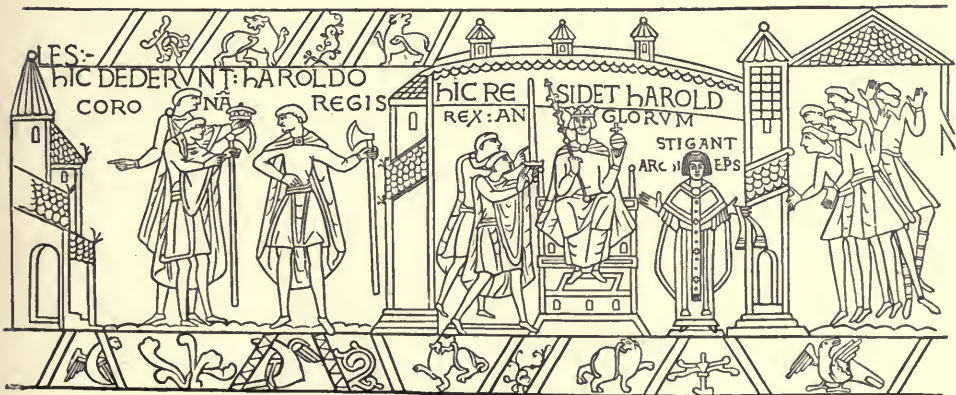 LES:-
hIC DEDERVNT: hAROLDO
CORONA REGIS
hIC RESIDET hAROLD
REX: ANGLORVM
STIGANT
ARChIEPS